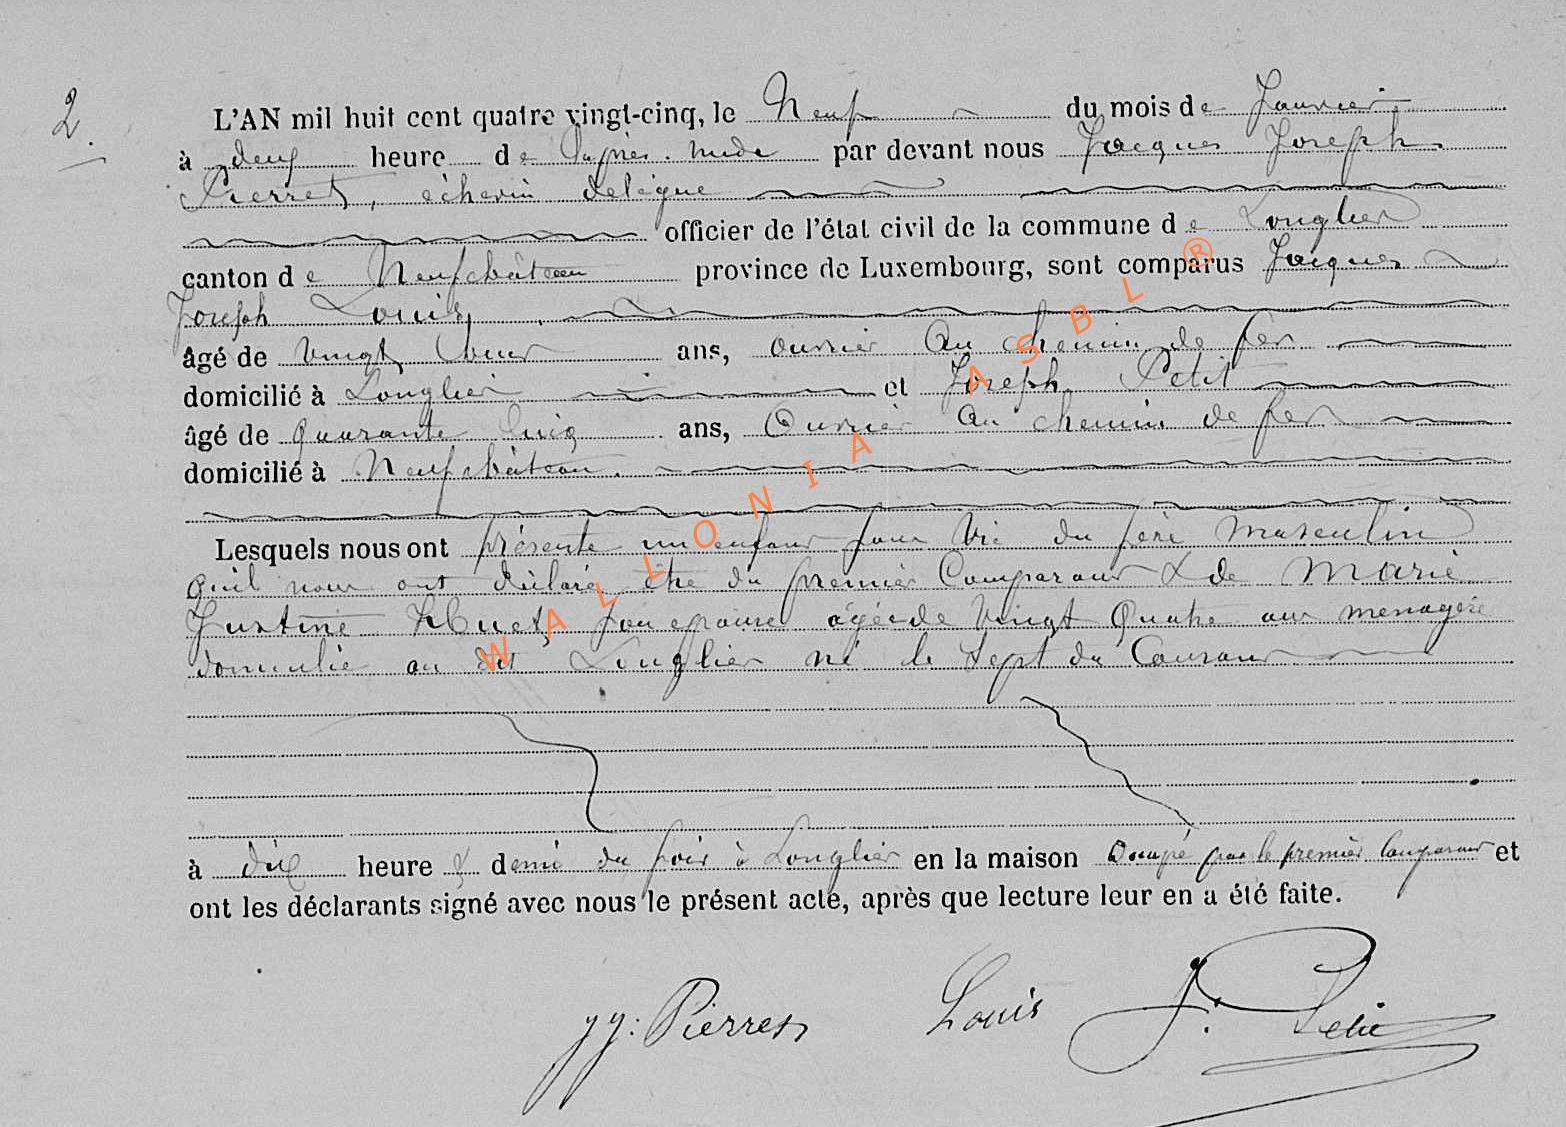 2.
L'AN mil huit cent quatre vingt-cinq, le Neuf du mois de Janvier
à deux heure de l'après-midi par devant nous Jacques Joseph
Pierret, échevin délégué
officier de l'état civil de la commune de Longlier
canton de Neufchâteau province de Luxembourg, sont comparus Jacques
Joseph Louis,
âgé de vingt ans, ouvrier au chemin de fer
domicilié à Longlier et Joseph Petit
âgé de quarante cinq ans, Ouvrier au chemin de fer
domicilié à Neufchâteau.
Lesquels nous ont présenté un enfant pour Vie du sexe masculin
qu'il nous ont déclaré être du premier Comparant & de Marie
Justine Huet, son épouse âgée de Vingt Quatre ans menagère
domicilié au dit Longlier né le sept du Courant
à dix heure & demi du soir à Longlier en la maison Occupé par le premier Comparant et
ont les déclarants signé avec nous le présent acte, après que lecture leur en a été faite.
JJ: Pierret Louis J. Petit
WALLONIA ASBL ®